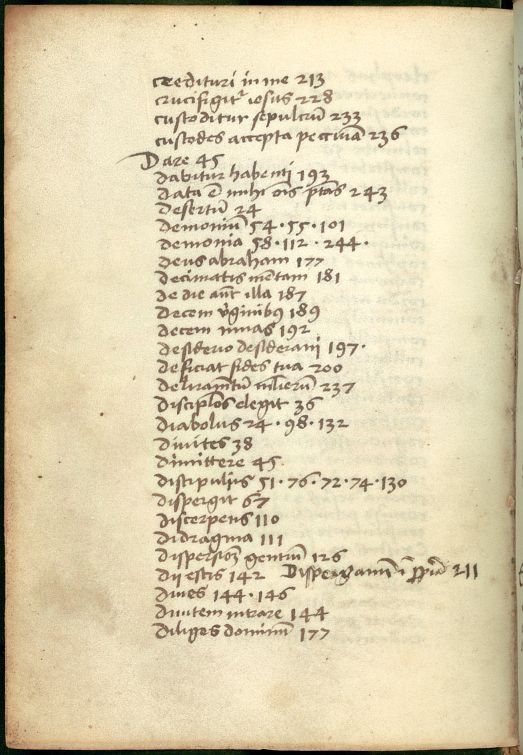 creditur in me 213
crucifigit̉ iesus 228
custoditur sepulcrū 233
custodes accepta peccuīa 236
Dare 45
dabitur habenti 193
data ē mihi oīs ptās 243
desertū 24
demoniū 54 · 55 · 101
demonia 58 · 112 · 244 ·
deus abraham 177
decimatis mētam 181
de die aūt illa 187
decem v̉ginibꝰ 189
decem mnas 192
desiderio desideraui 197 ·
deficiat fides tua 200
deliramētū mlierū 237
discipłos elegit 36
diabolus 24 · 98 · 132
diuites 38
dimittere 45
discipulꝰ 51 · 76 · 72 · 74 · 130
dispergit 67
discerpens 110
didragma 111
dispersioꝫ gentiū 126
dii estis 142 Dispergamī ī 211
diues 144 · 146
diuitem intrare 144
diliges dominū 177